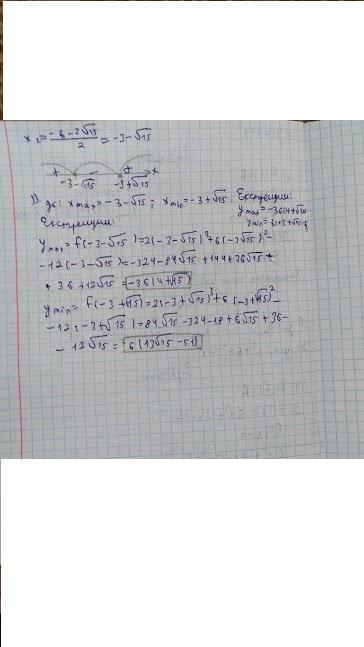 x₂ = (-6-2√15)/2 = -3-√15
+ - + x
-3-√15 -3+√15
xmax = -3-√15; xmin = -3+√15. Екстремуми:
Екстремуми:
ymax = f(-3-√15) = 2(-3-√15)³+6(-3-√15)²-
-12(-3-√15) = -324-84√15+144+36√15+
+36+12√15 = -36(4+√15)
ymin = f(-3+√15) = 2(-3+√15)³+6(-3+√15)²-
-12(-3+√15) = 84√15-324-18+6√15+36-
-12√15 = 6(13√15-51)